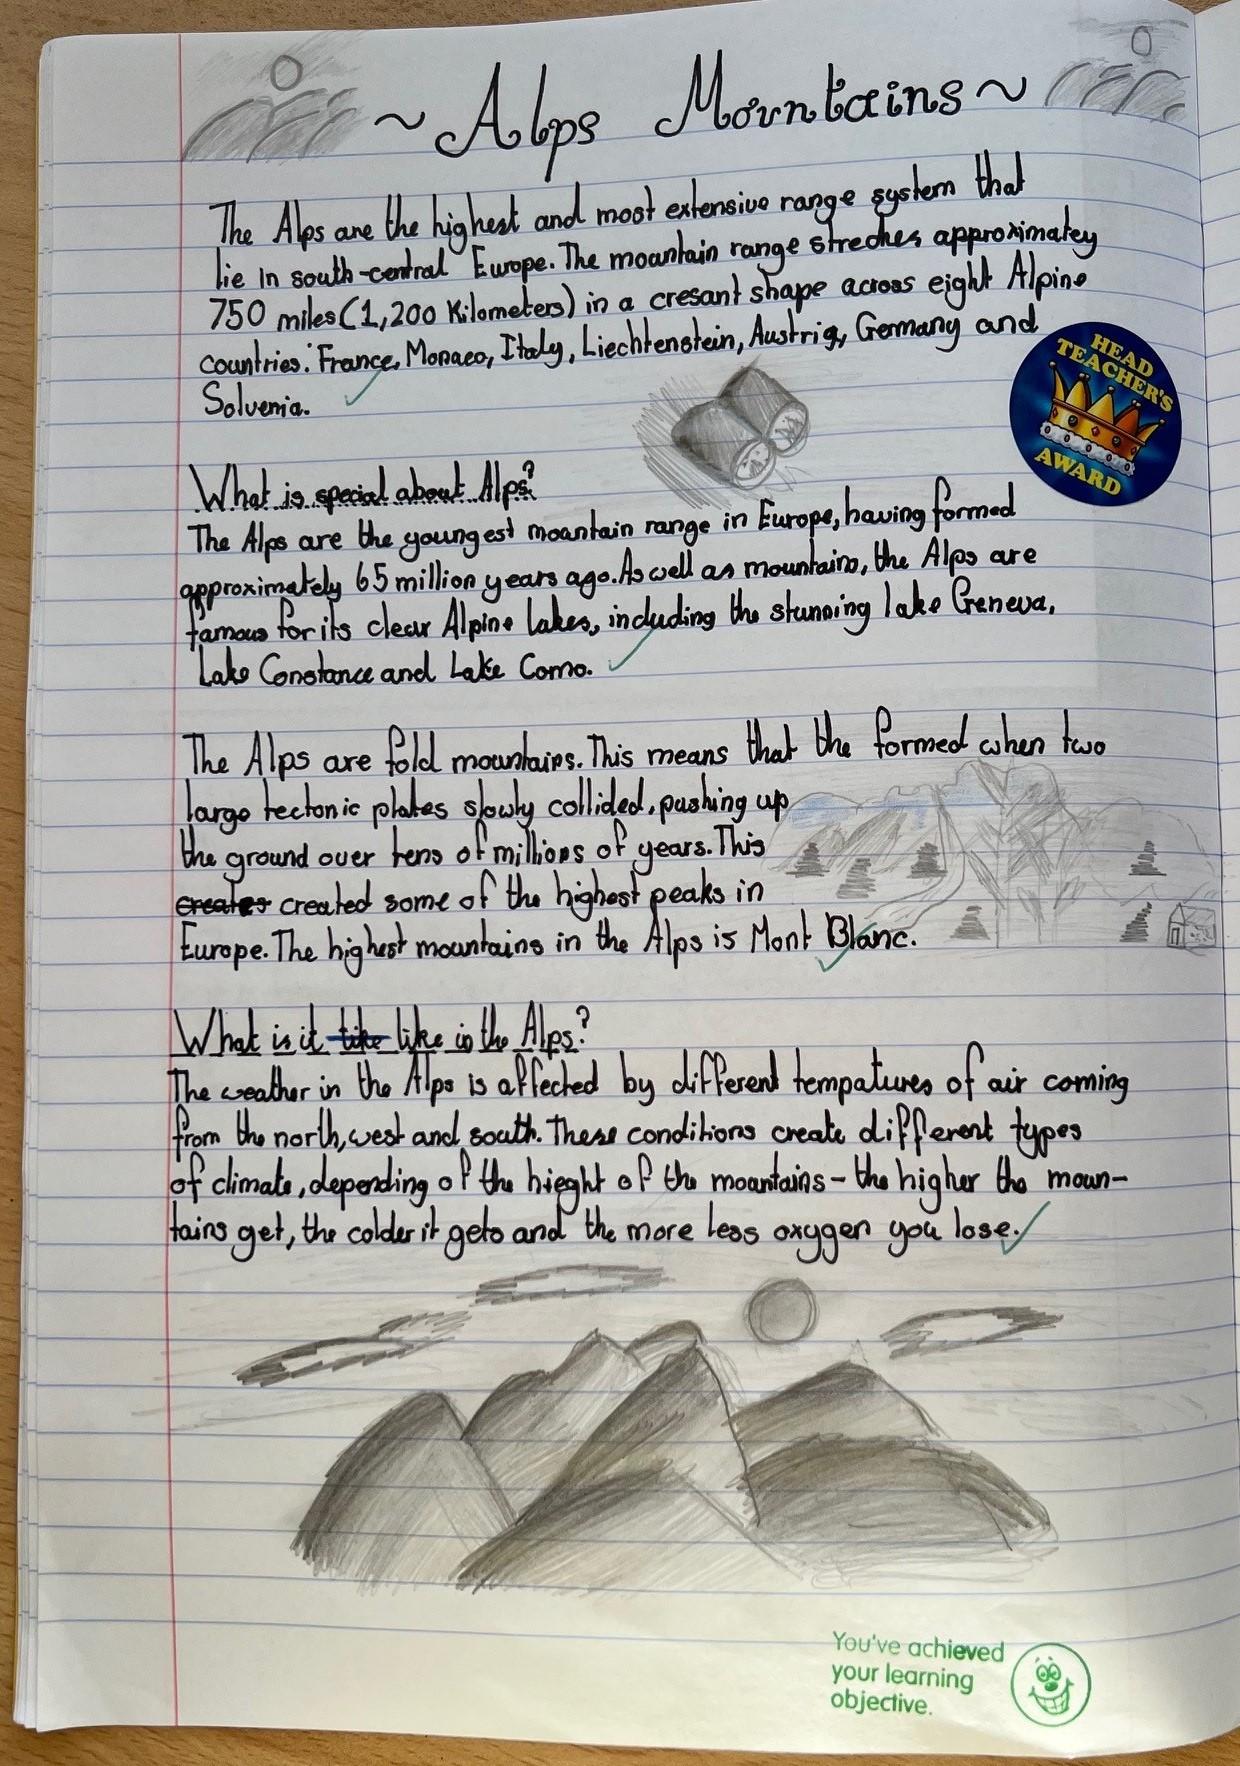 ~Alps Mountains~
The Alps are the highest and most extensive range system that
lie in south-central Europe. The mountain range streches approximatey
750 miles (1,200 Kilometers) in a cresant shape across eight Alpine
countries: France, Monaco, Italy, Liechtenstein, Austria, Germany and
Solvenia.
HEAD
TEACHER'S
AWARD
What is special about Alps?
The Alps are the youngest mountain range in Europe, having formed
approximately 65 million years ago. As well as mountains, the Alps are
famous for its clear Alpine Lakes, including the stunning lake Geneva,
Lake Constance and Lake Como.
The Alps are fold mountains. This means that the formed when two
large tectonic plates slowly collided, pushing up
the ground over tens of millions of years. This
creates created some of the highest peaks in
Europe. The highest mountains in the Alps is Mont Blanc.
What is it like like in the Alps?
The weather in the Alps is affected by different tempatures of air coming
from the north, west and south. These conditions create different types
of climate, depending of the hieght of the mountains - the higher the moun-
tains get, the colder it gets and the more less oxygen you lose.
You've achieved
your learning
objective.